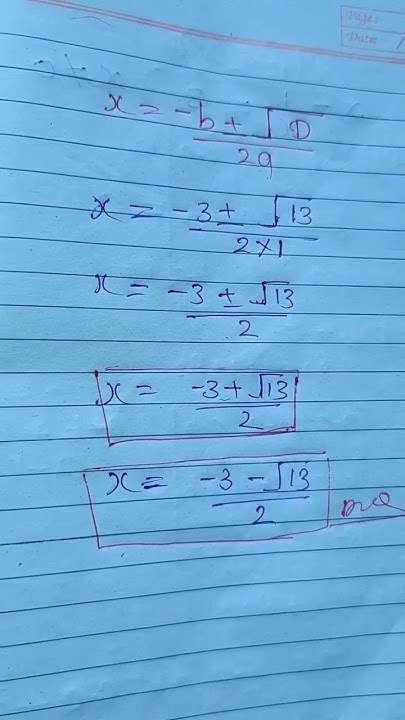 Page:
Date:
x = -b ± √D / 2a
x = -3 ± √13 / 2×1
x = -3 ± √13 / 2
x = -3 + √13 / 2
x = -3 - √13 / 2